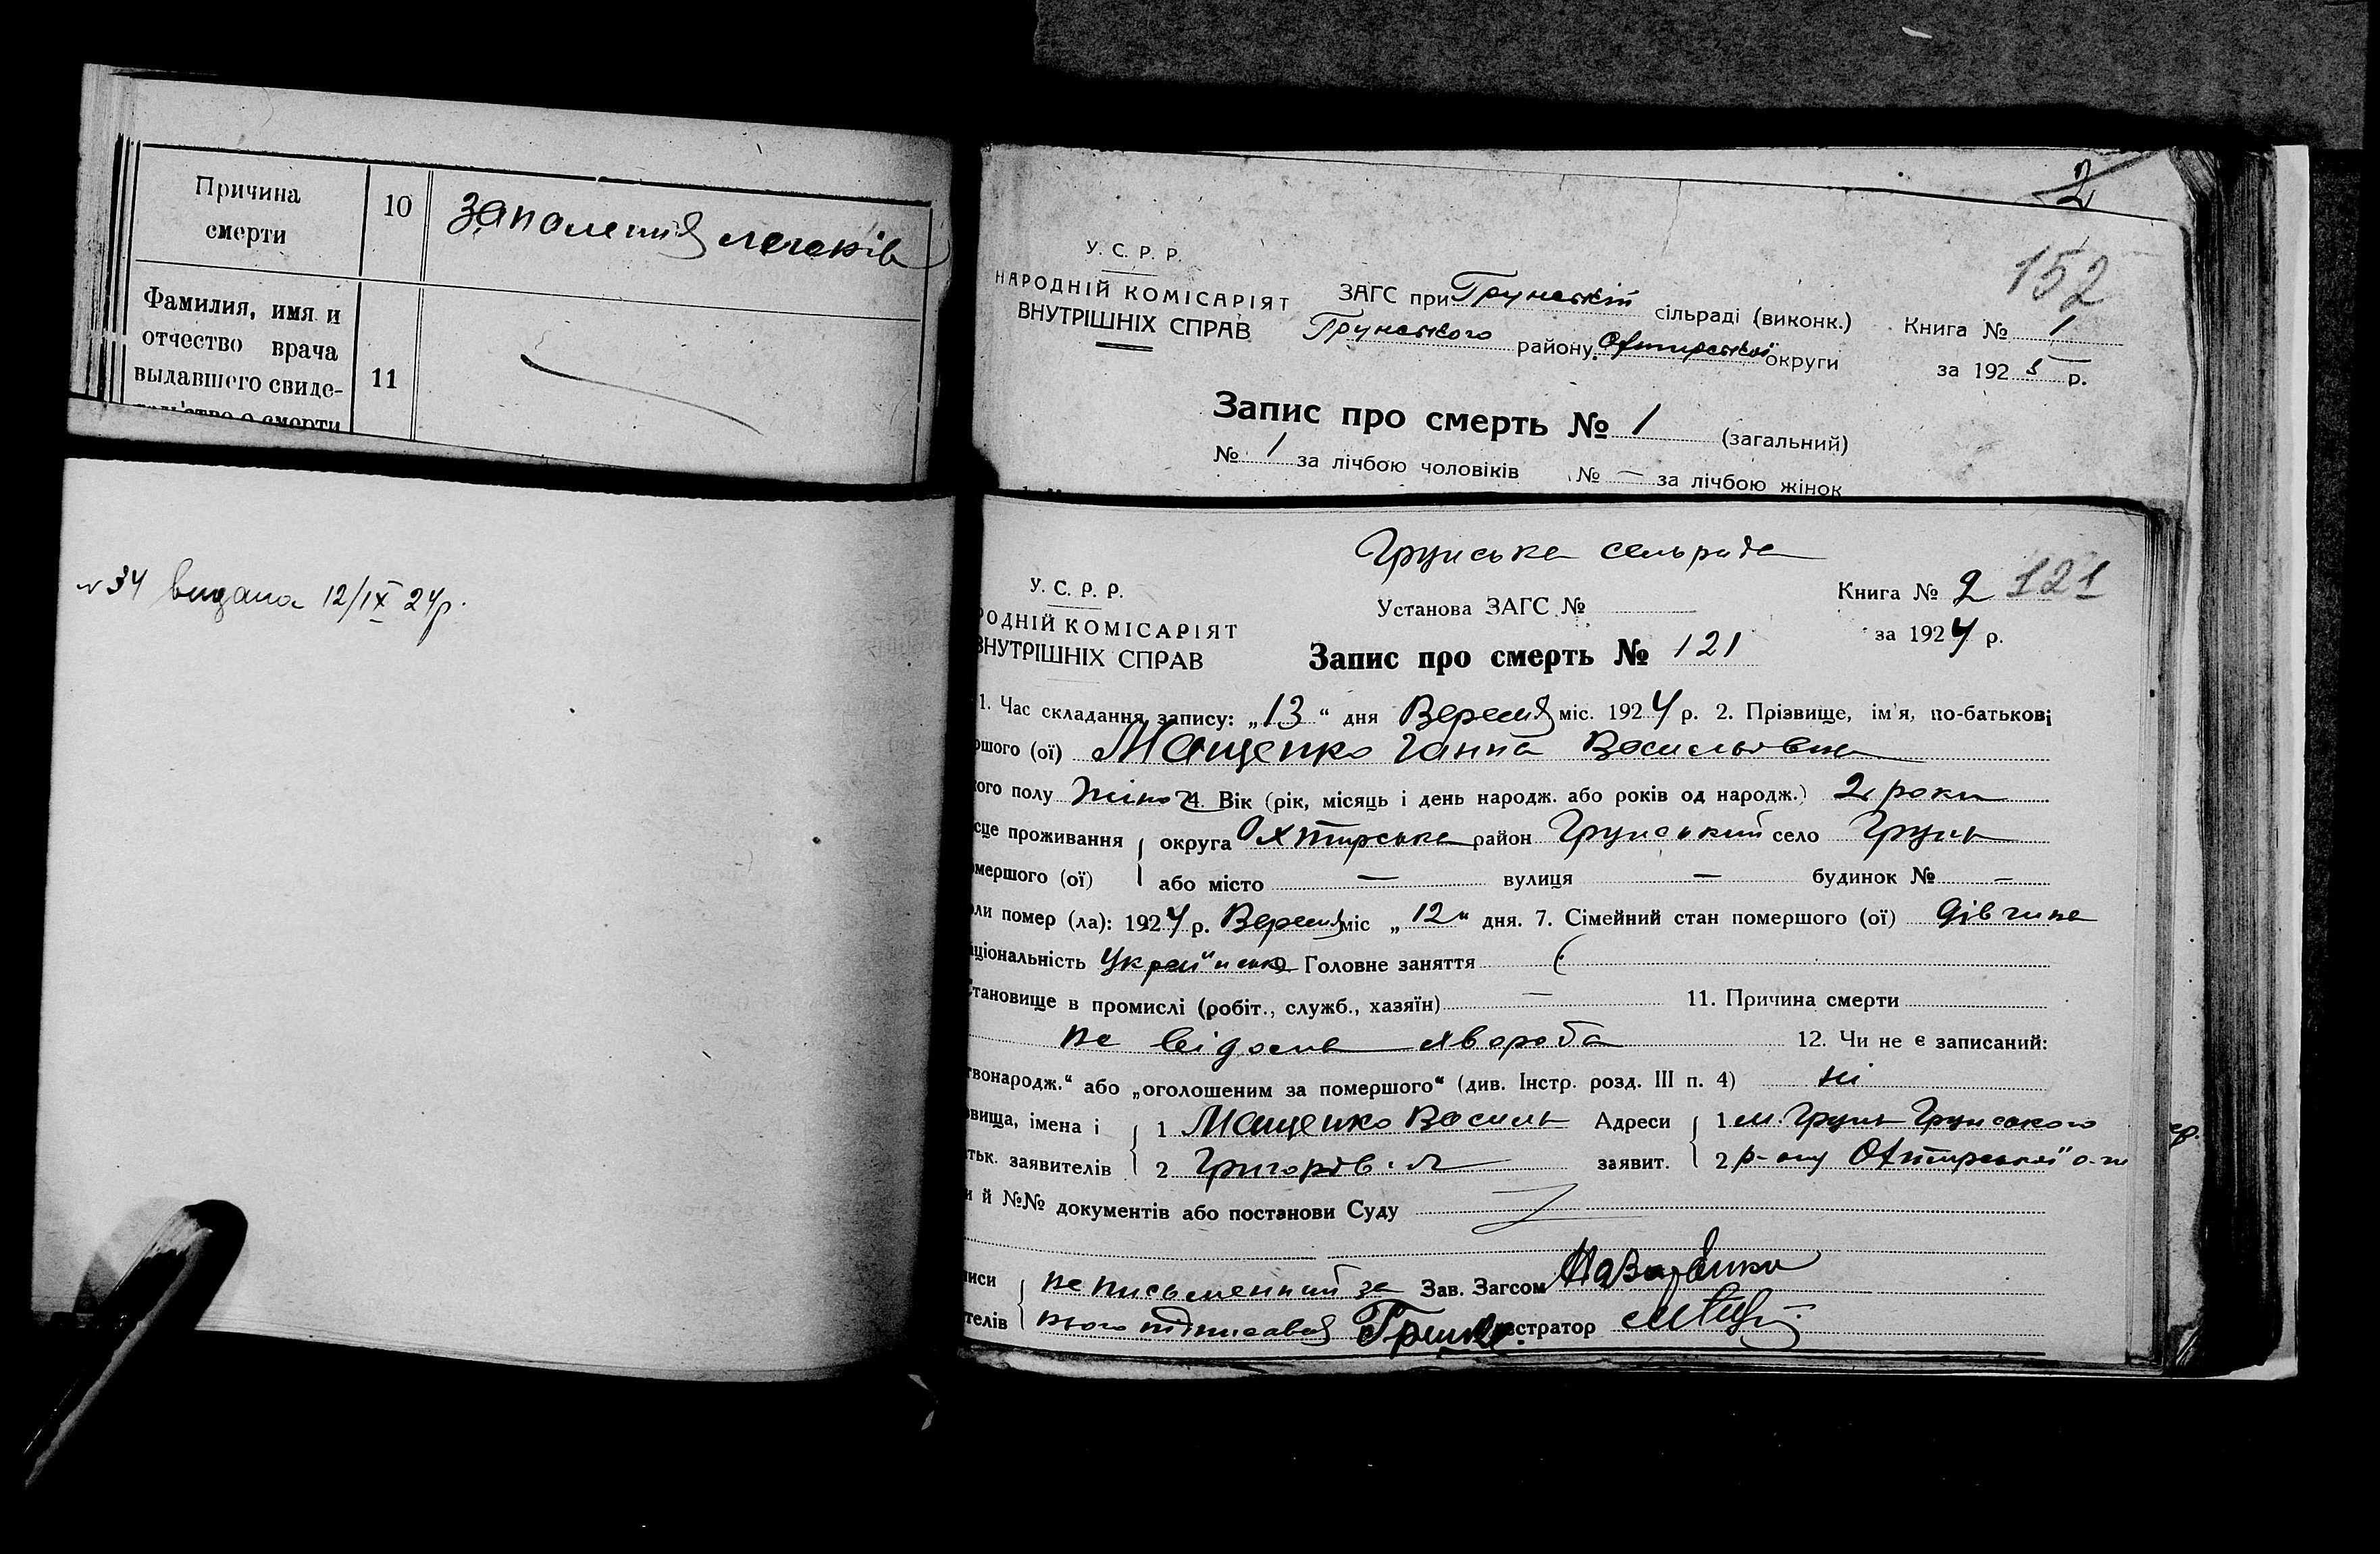 Причина
смерти
10
запаления легеків
Фамилия, имя и
отчество врача
выдавшего свиде-
11
2
152
У. С. Р. Р.
НАРОДНІЙ КОМІСАРІЯТ
ВНУТРІШНІХ СПРАВ
ЗАГС при Грунській сільраді (виконк.)
Грунського району Охтирської округи
Книга № 1
за 1925 р.
Запис про смерть № 1 (загальний)
№ 1 за лічбою чоловіків № — за лічбою жінок
№ 34 видана 12/IX 24р.
Грунська сельрада
У. С. Р. Р.
РОДНІЙ КОМІСАРІЯТ
ВНУТРІШНІХ СПРАВ
Установа ЗАГС №
Книга № 2 121
за 1924 р.
Запис про смерть № 121
1. Час складання запису: „13“ дня Вересня міс. 1924 р. 2. Прізвище, ім'я, по-батькові
ршого (ої) Мащенко Ганна Васильовна
кого полу жіноч 4. Вік (рік, місяць і день народж. або років од народж.) 2 роки
сце проживання округа Охтирська район Грунський село Грунь
омершого (ої) або місто — вулиця — будинок № —
оли помер (ла): 1924 р. Вересня міс „12“ дня. 7. Сімейний стан помершого (ої) дівчина
аціональність Українка Головне заняття
Становище в промислі (робіт., служб., хазяїн) — 11. Причина смерти
не відома хвороба 12. Чи не є записаний:
твонародж.“ або „оголошеним за помершого“ (див. Інстр. розд. III п. 4) ні
овища, імена і 1 Мащенко Василь Адреси 1 м. Грунь Грунського
тьк. заявителів 2 Григорів заявит. 2 р-ону Охтирської о-ги
и й №№ документів або постанови Суду
писи не письменний за Зав. Загсом
телів нього підписався естратор